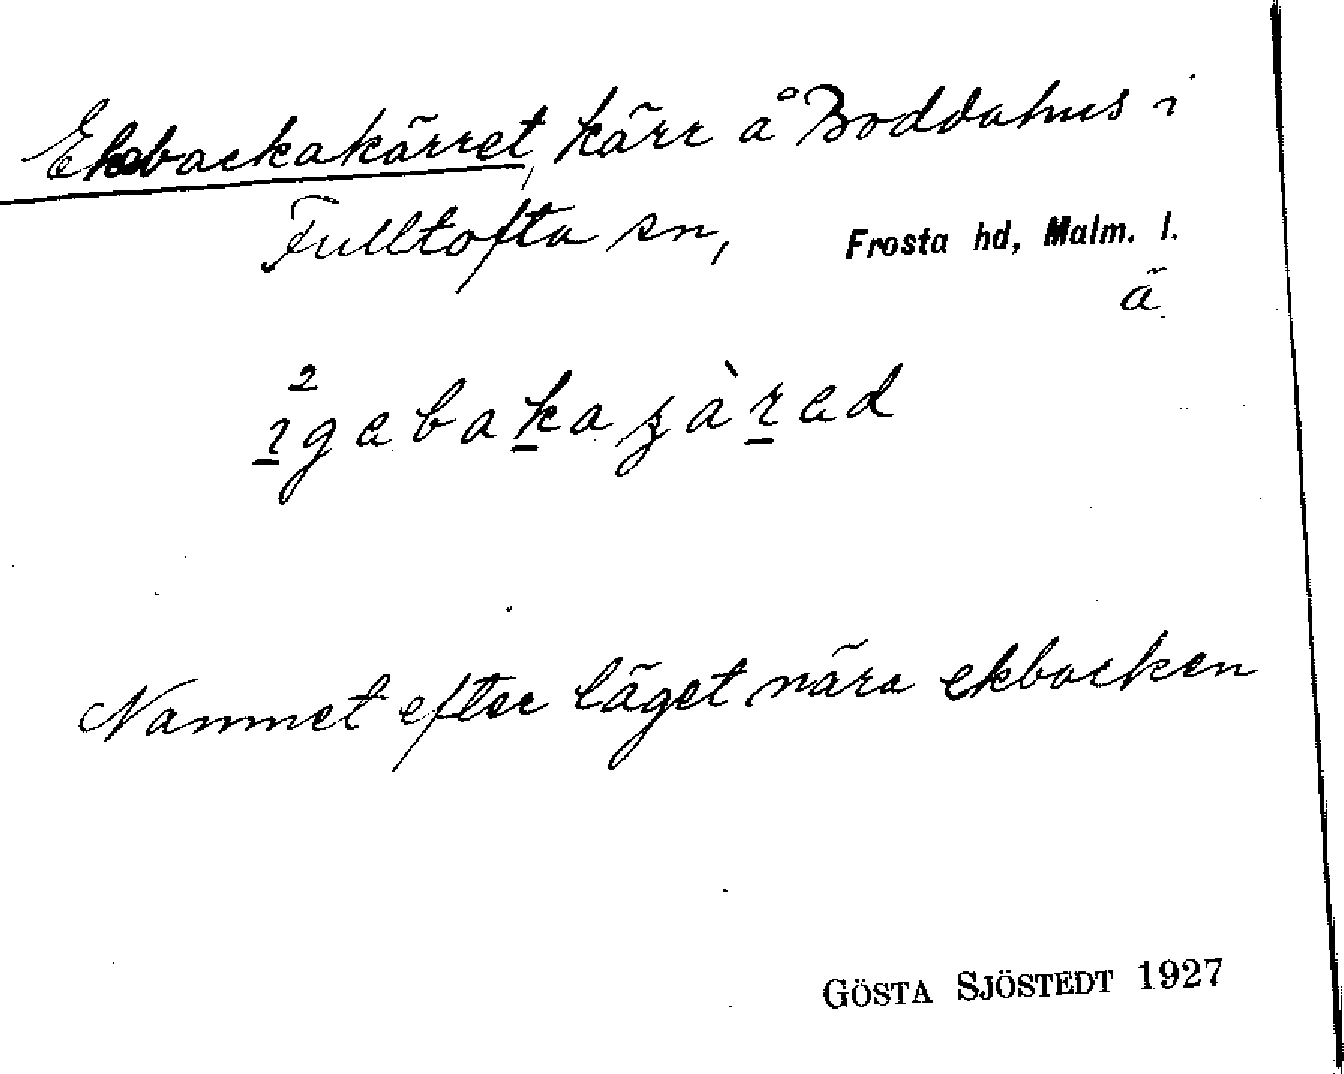 Ekebackakärret, kärr å Boddahus i
Fulltofta sn, Frosta hd, Malm. l.
ä
2
Nammet efter läget nära ekbacken
GÖSTA SJÖSTEDT 1927